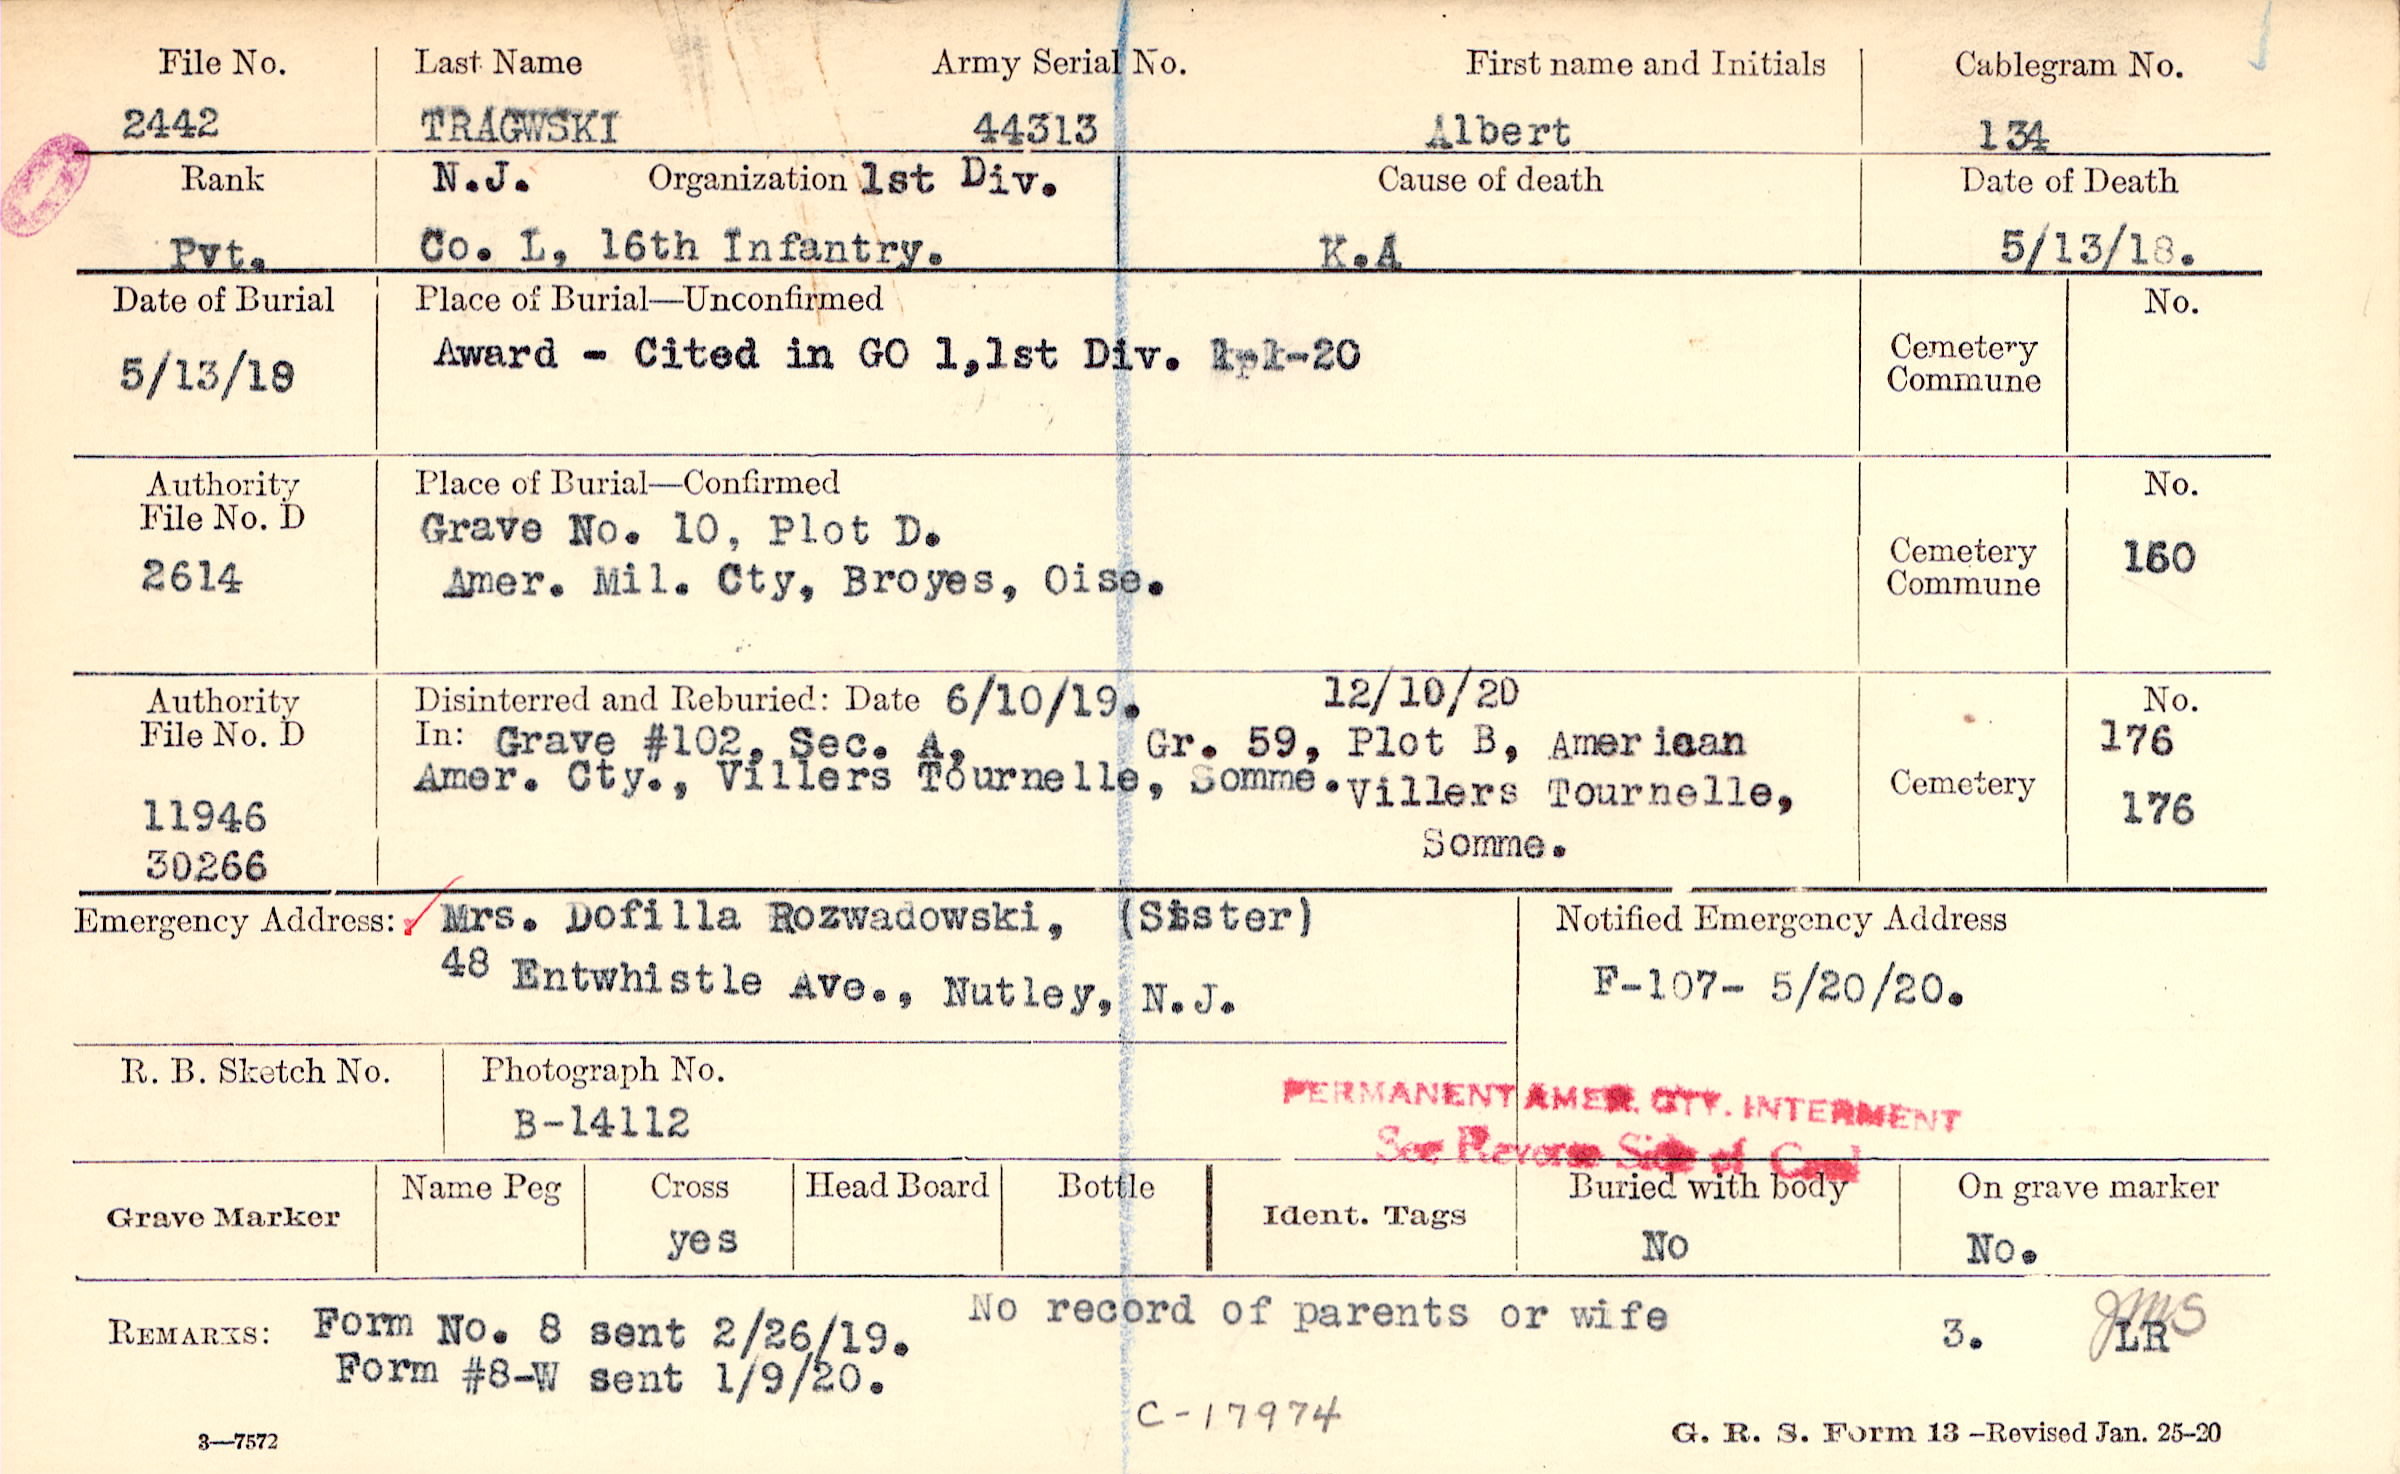 File No. Last Name Army Serial No. First name and Initials Cablegram No.
2442 TRAGWSKI 44313 Albert 134
Rank N.J. Organization 1st Div. Cause of death Date of Death
Pvt. Co. L, 16th Infantry. K.A 5/13/18.
Date of Burial Place of Burial—Unconfirmed No.
5/13/18 Award - Cited in GO 1,1st Div. -20 Cemetery
Commune
Authority Place of Burial—Confirmed No.
File No. D Grave No. 10, Plot D.
2614 Amer. Mil. Cty, Broyes, Oise. Cemetery 160
Commune
Authority Disinterred and Reburied: Date 6/10/19. 12/10/20 No.
File No. D In: Grave #102, Sec. A, Gr. 59, Plot B, American 176
Amer. Cty., Villers Tournelle, Somme. Villers Tournelle, Cemetery
11946 Somme. 176
30266
Emergency Address: Mrs. Dofilla Rozwadowski, (Sister) Notified Emergency Address
48 Entwhistle Ave., Nutley, N.J. F-107- 5/20/20.
R. B. Sketch No. Photograph No.
B-14112
PERMANENT AMER. CTY. INTERMENT
See Reverse Side of Card
Grave Marker Name Peg Cross Head Board Bottle Ident. Tags Buried with body On grave marker
yes No No.
REMARKS: Form No. 8 sent 2/26/19. No record of parents or wife 3. LR JMS
Form #8-W sent 1/9/20.
C-17974
3—7572 G. R. S. Form 13 –Revised Jan. 25–20